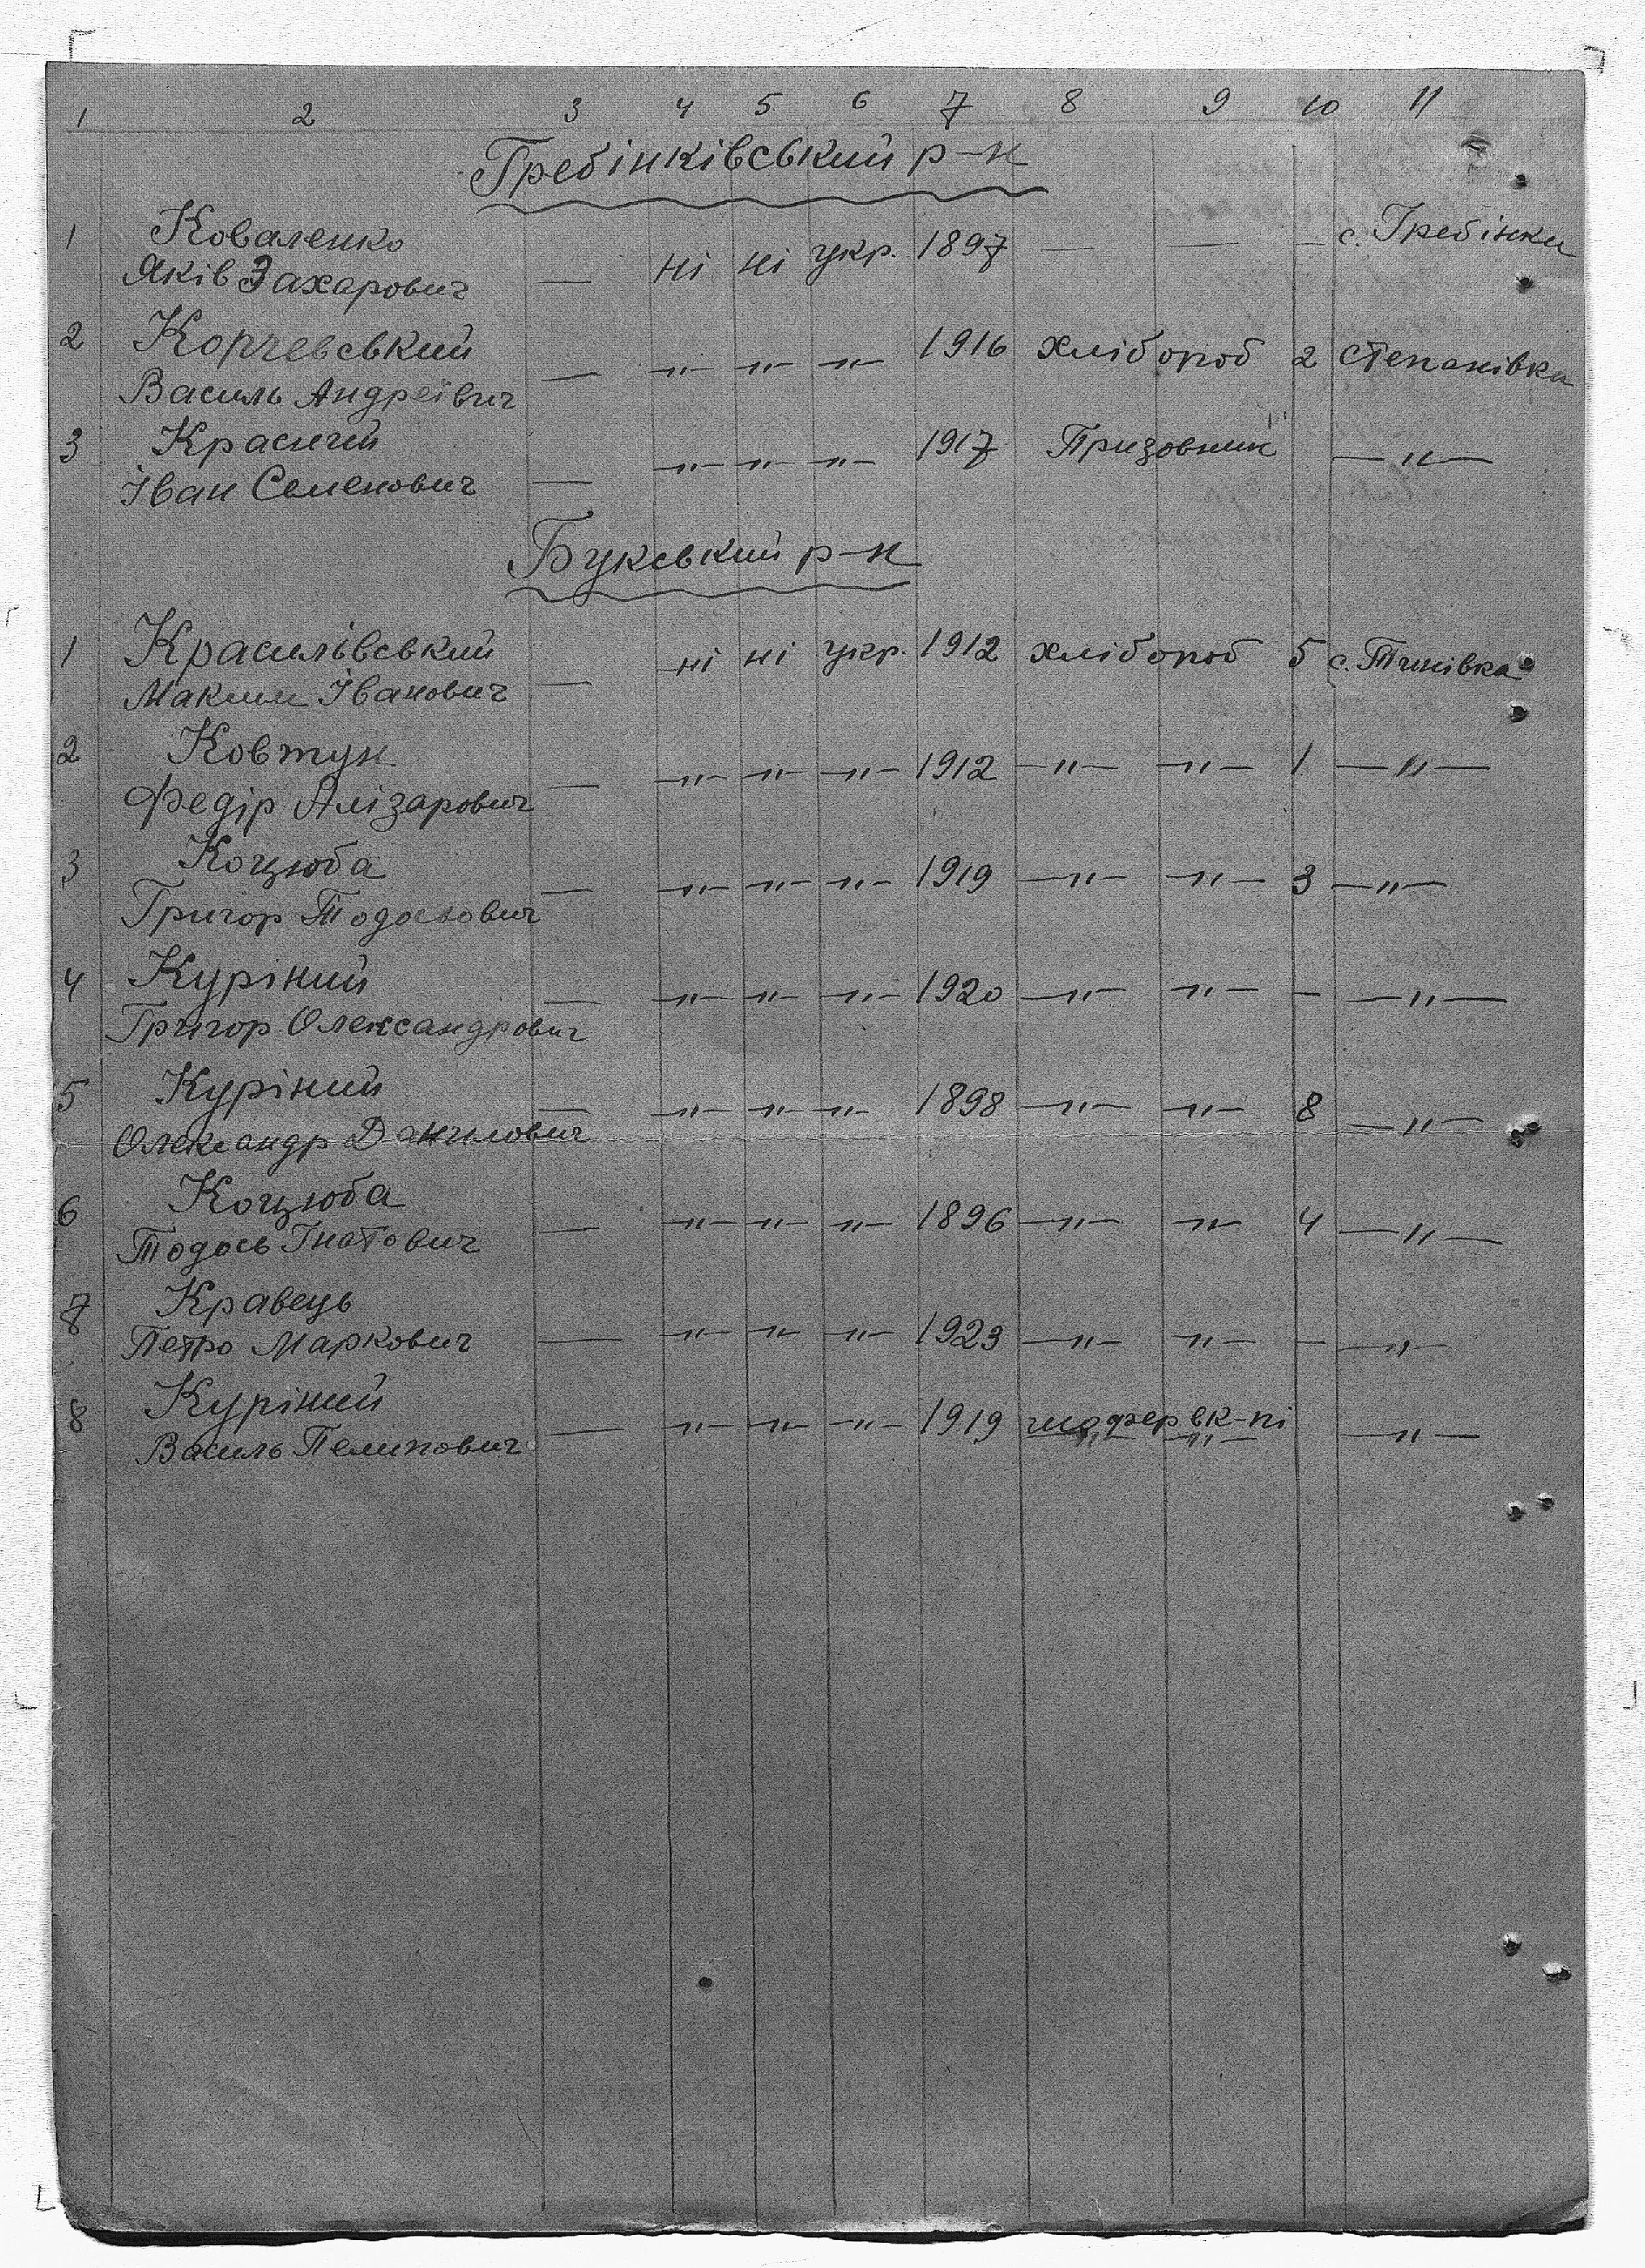 1 2 3 4 5 6 7 8 9 10 11
Гребінківський р-н
1 Коваленко
Яків Захарович — ні ні укр. 1897 — — — с. Гребінки
2 Корчевський
Василь Андреївич — -"- -"- -"- 1916 хлібороб 2 Степанівка
3 Красичій
Іван Семенович — -"- -"- -"- 1917 Призовник -"-
Букський р-н
1 Красилівський
Максим Іванович — ні ні укр. 1912 хлібороб 5 с. Тинівка
2 Ковтун
Федір Алізарович — -"- -"- -"- 1912 -"- -"- 1 -"-
3 Коцюба
Григор Тодосьович — -"- -"- -"- 1919 -"- -"- 3 -"-
4 Куріний
Григор Олександрович — -"- -"- -"- 1920 -"- -"- — -"-
5 Куріний
Олександр Данилович — -"- -"- -"- 1898 -"- -"- 8 -"-
6 Коцюба
Тодось Гнатович — -"- -"- -"- 1896 -"- -"- 4 -"-
7 Кравець
Петро Маркович — -"- -"- -"- 1923 -"- -"- — -"-
8 Куріний
Василь Пелипович — -"- -"- -"- 1919 шофер в к-пі -"-
-"- -"-